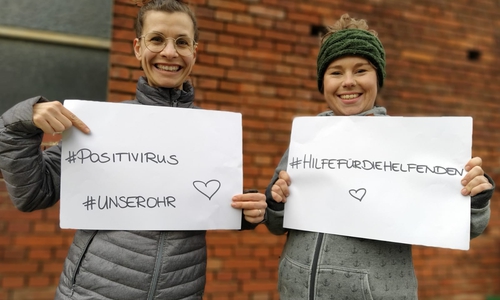 #POSITIVIRUS
#UNSEROHR
#HILFEFÜRDIEHELFENDEN